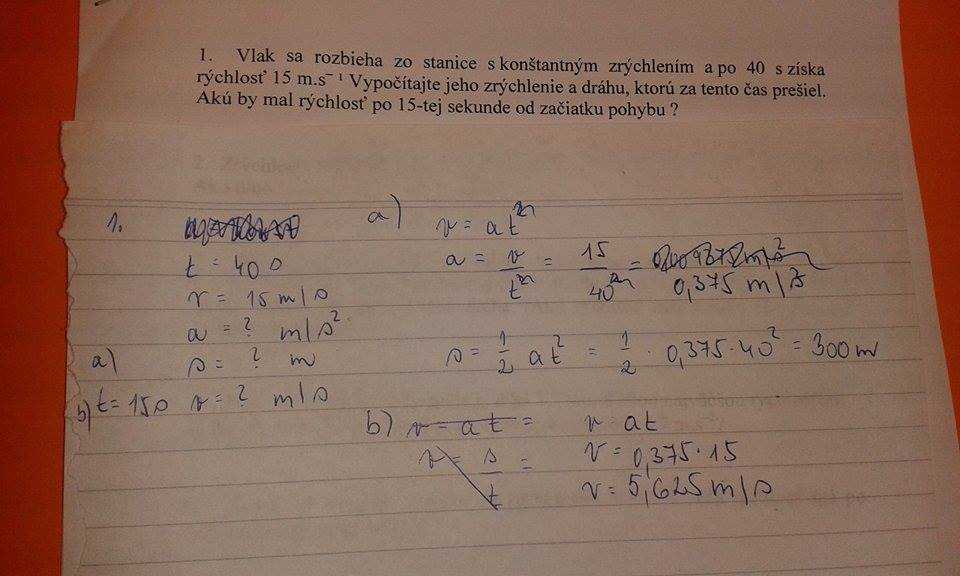 1. Vlak sa rozbieha zo stanice s konštantným zrýchlením a po 40 s získa
rýchlosť 15 m.s⁻¹ Vypočítajte jeho zrýchlenie a dráhu, ktorú za tento čas prešiel.
Akú by mal rýchlosť po 15-tej sekunde od začiatku pohybu ?
1.
t = 40 s
v = 15 m/s
a = ? m/s²
a) s = ? m
b) t = 15 s v = ? m/s
a) v = at
a = v/t = 15/40 = 0,375 m/s²
s = 1/2 at² = 1/2 · 0,375 · 40² = 300 m
b) v = at = v at
v = s/t = v = 0,375 · 15
v = 5,625 m/s